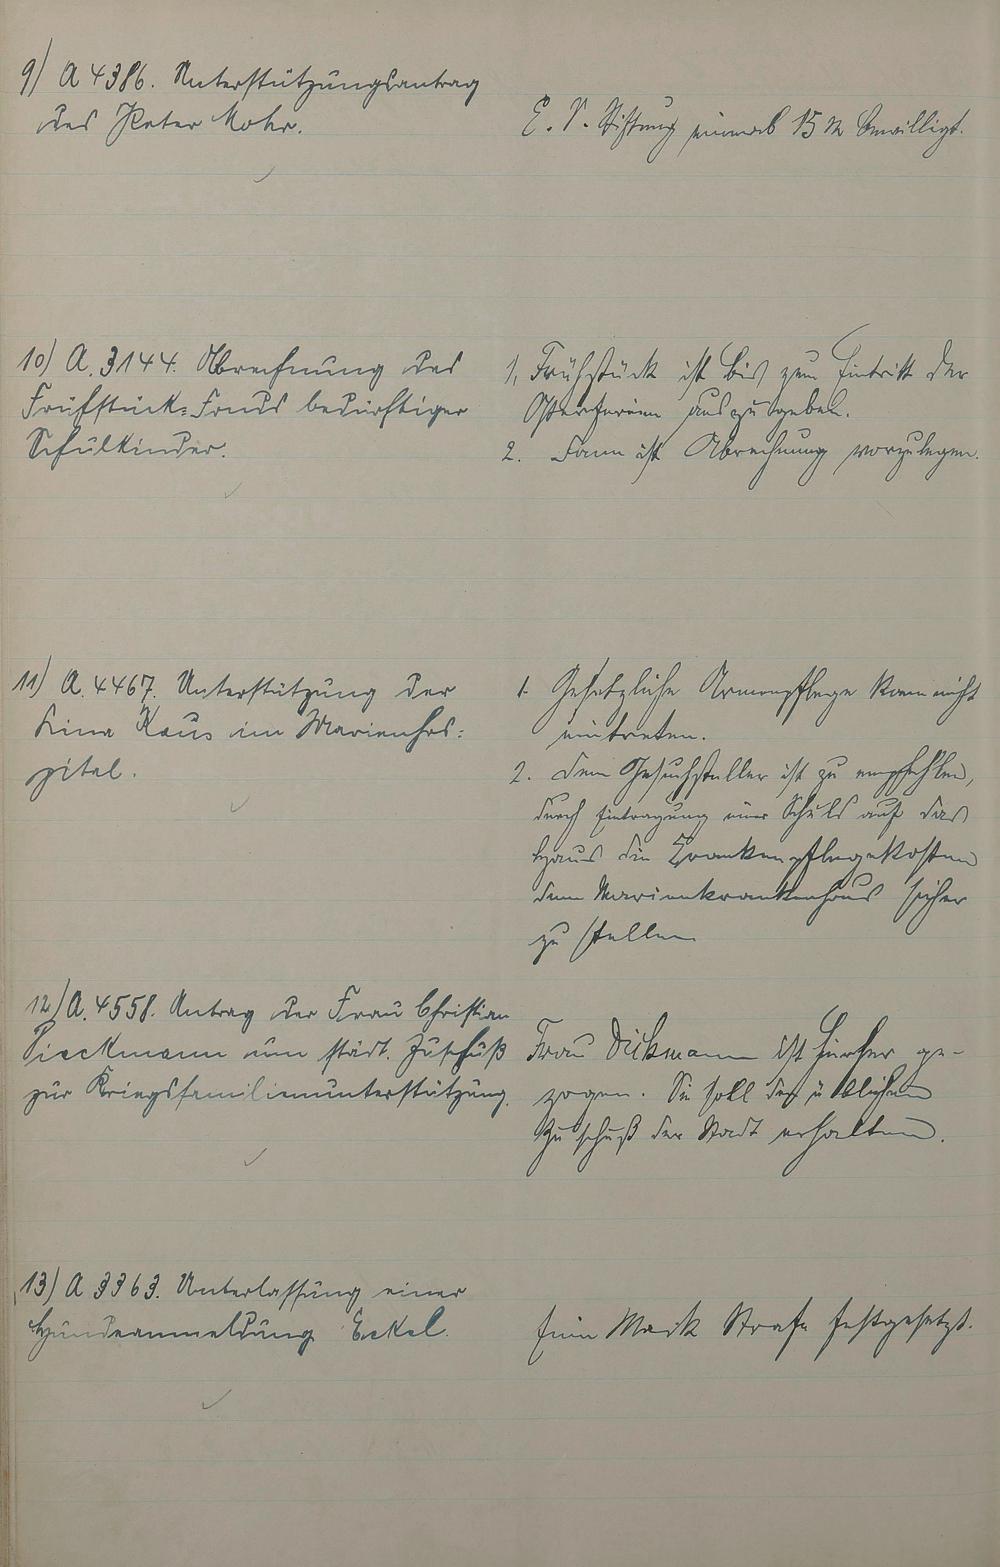 9) A 4386. Unterstützungsantrag
des Peter Mohr.
E. V. Stiftung einmal 15 M bewilligt.
10) A. 3144. Abrechnung des
Frühstück-Fonds bedürftiger
Schulkinder.
1. Frühstück ist bis zum Eintritt der
Osterferien auszugeben.
2. Dann ist Abrechnung vorzulegen.
11) A. 4467. Unterstützung der
Lina Kaus im Marienhos-
pital.
1. Gesetzliche Armenpflege kann nicht
eintreten.
2. Dem Gesuchsteller ist zu empfehlen,
durch Eintragung einer Schuld auf das
Haus die Krankenpflegekosten
dem Marienkrankenhaus sicher
zu stellen
12) A. 4558. Antrag der Frau Christian
Dieckmann um städt. Zuschuß
zur Kriegsfamilienunterstützung.
Frau Dickmann ist hierher ge-
zogen. Sie soll den üblichen
Zuschuß der Stadt erhalten.
13) A 3363. Unterlassung einer
Hundeanmeldung Eckel.
Eine Mark Strafe festgesetzt.